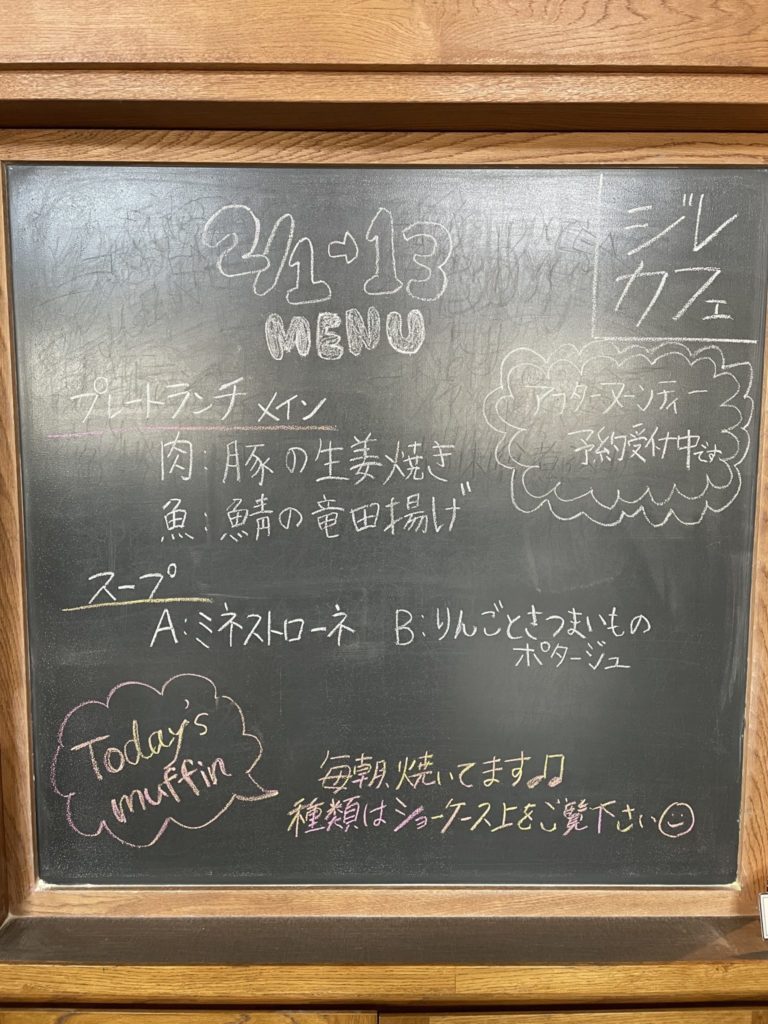 2/1→13
MENU
ジレ
カフェ
アフターヌーンティー
予約受付中です
プレートランチ メイン
肉:豚の生姜焼き
魚:鯖の竜田揚げ
スープ
A:ミネストローネ B:りんごとさつまいもの
ポタージュ
Today's
muffin
毎朝焼いてます♫
種類はショーケース上をご覧下さい☺